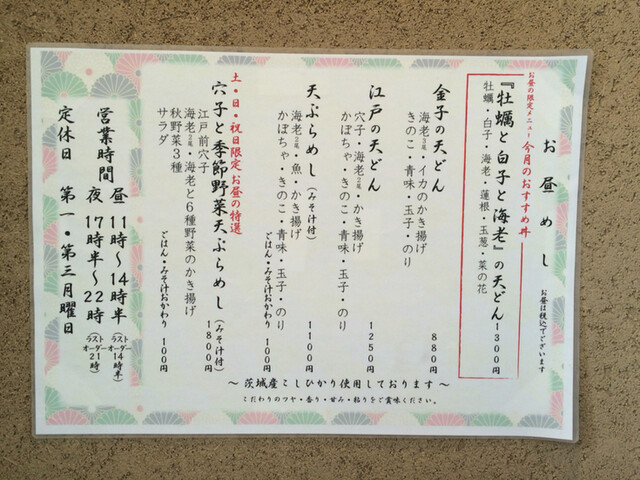 お昼めし
お昼は税込でございます
お昼の限定メニュー 今月のおすすめ丼
『牡蠣と白子と海老』の天どん 1300円
牡蠣・白子・海老・蓮根・玉葱・菜の花
金子の天どん 880円
海老2尾・イカのかき揚げ
きのこ・青味・玉子・のり
江戸の天どん 1250円
穴子・海老2尾・かき揚げ
かぼちゃ・きのこ・青味・玉子・のり
天ぷらめし(みそ汁付) 1100円
海老2尾・魚・かき揚げ
かぼちゃ・きのこ・青味・玉子・のり
ごはん・みそ汁おかわり 100円
土・日・祝日限定お昼の特選
穴子と季節野菜天ぷらめし(みそ汁付) 1800円
江戸前穴子
海老2尾・海老と6種野菜のかき揚げ
秋野菜3種
サラダ
ごはん・みそ汁おかわり 100円
営業時間
昼 11時〜14時半(ラストオーダー14時半)
夜 17時半〜22時(ラストオーダー21時)
定休日 第一・第三月曜日
〜茨城産こしひかり使用しております〜
こだわりのツヤ・香り・甘み・粘りをご賞味ください。